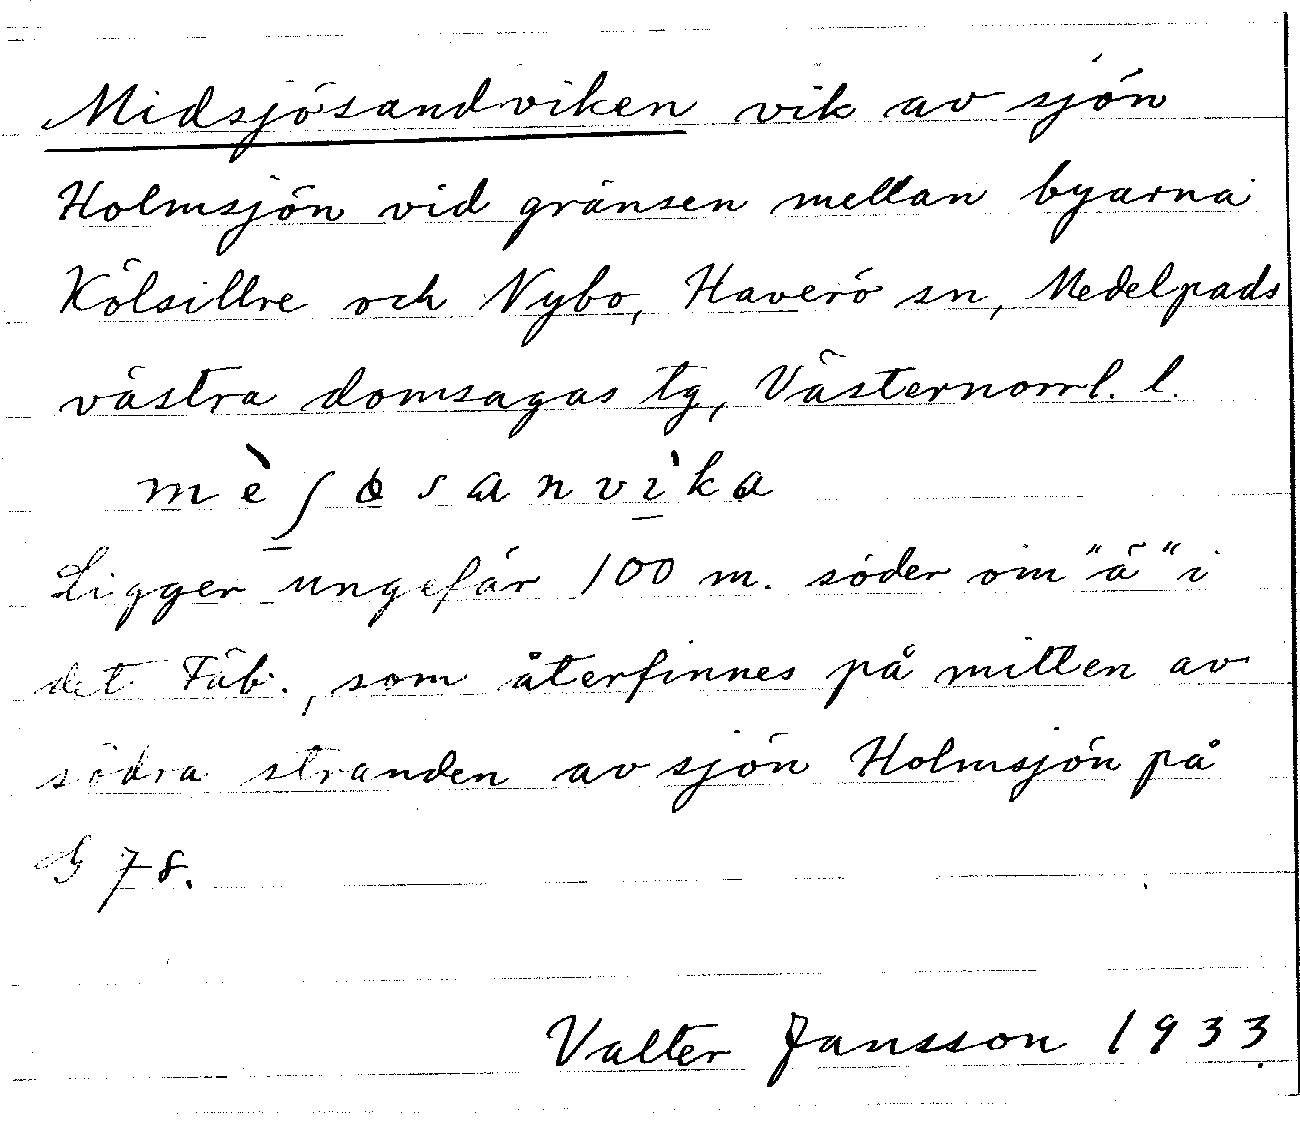 Midsjösandviken vik av sjön
Holmsjön vid gränsen mellan byarna
Kölsillre och Nybo, Haverö sn, Medelpads
västra domsagas tg, Västernorrl. l.
mèʃɵsanvìka
Ligger ungefär 100 m. söder om "ä" i
det Fäb., som återfinnes på mitten av
södra stranden av sjön Holmsjön på
G 78.
Valter Jansson 1933.